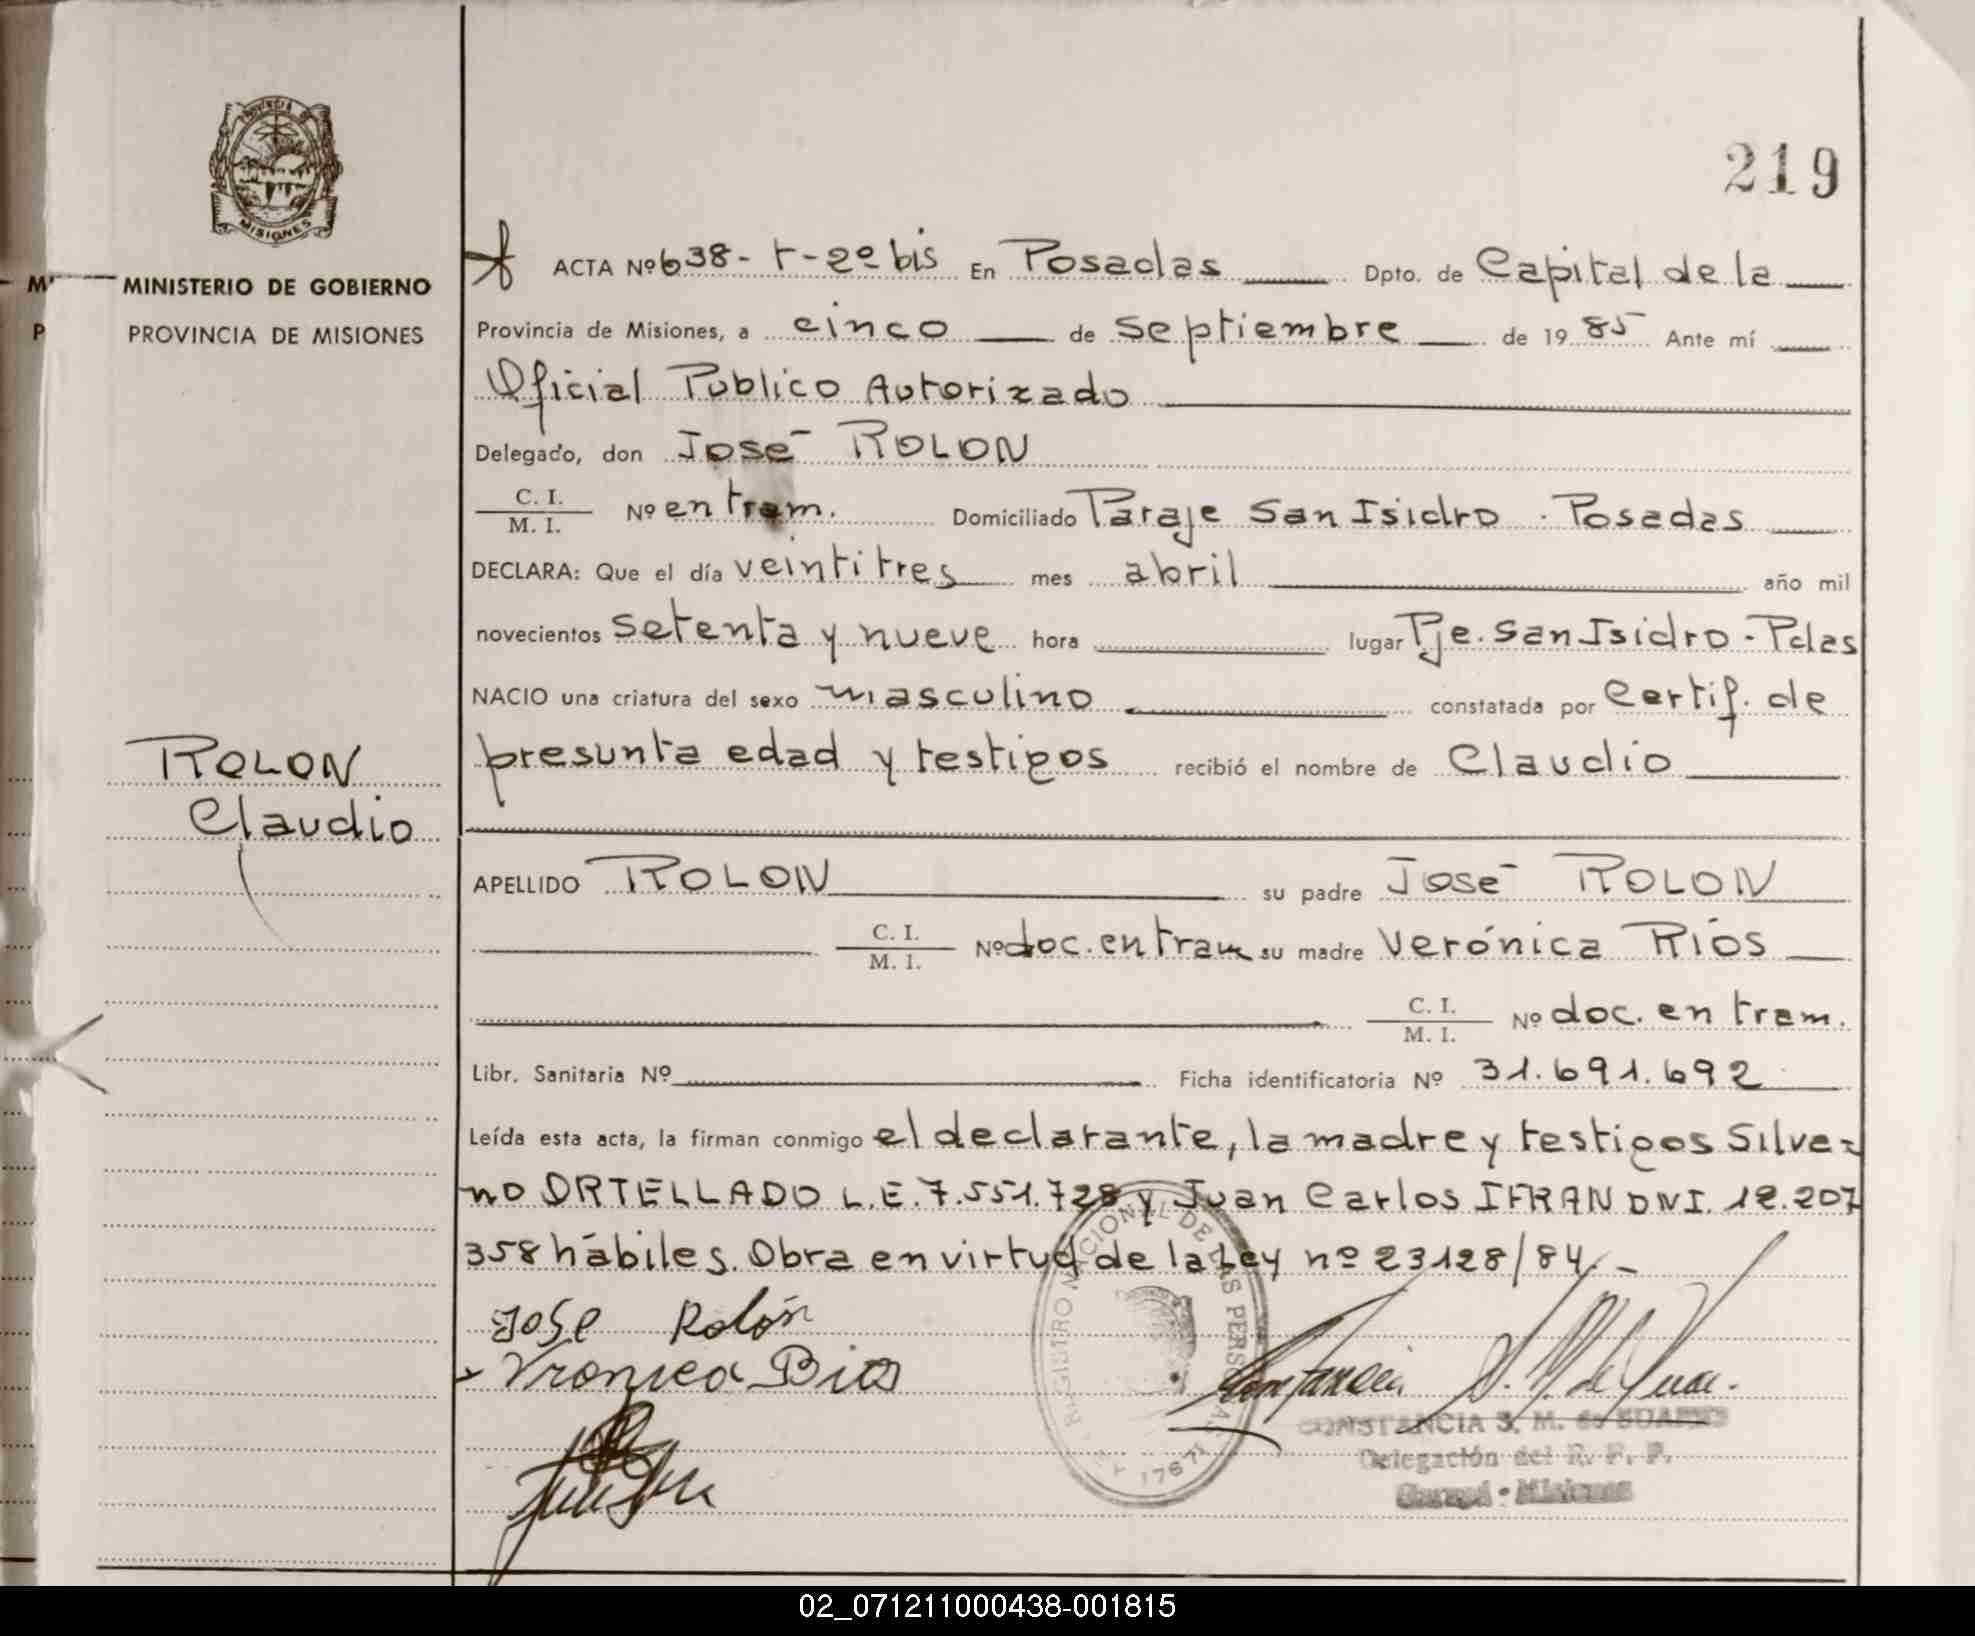 219
PROVINCIA DE
MISIONES
MINISTERIO DE GOBIERNO
PROVINCIA DE MISIONES
ACTA Nº 638-T-2º bis En Posadas Dpto. de Capital de la
Provincia de Misiones, a cinco de septiembre de 1985 Ante mí
Oficial Publico Autorizado
Delegado, don José ROLON
C. I.
M. I. Nº en tram. Domiciliado Paraje San Isidro - Posadas
DECLARA: Que el día veintitres mes abril año mil
novecientos setenta y nueve hora lugar Pje. San Isidro - Pdas
NACIO una criatura del sexo masculino constatada por Certif. de
presunta edad y testigos recibió el nombre de Claudio
ROLON
Claudio
APELLIDO ROLON su padre José ROLON
C. I.
M. I. Nº doc. en tram su madre Verónica Ríos
C. I.
M. I. Nº doc. en tram.
Libr. Sanitaria Nº Ficha identificatoria Nº 31.691.692
Leída esta acta, la firman conmigo el declarante, la madre y testigos Silve-
no ORTELLADO L.E. 7.551.728 y Juan Carlos IFRAN DNI. 12.207
358 hábiles. Obra en virtud de la Ley nº 23128/84.-
José Rolón
Vronica Rios
REGISTRO NACIONAL DE LAS PERSONAS
17671
Constancia S. M. de
CONSTANCIA S. M. de SUAREZ
Delegación del R. P. P.
Misiones
02_071211000438-001815